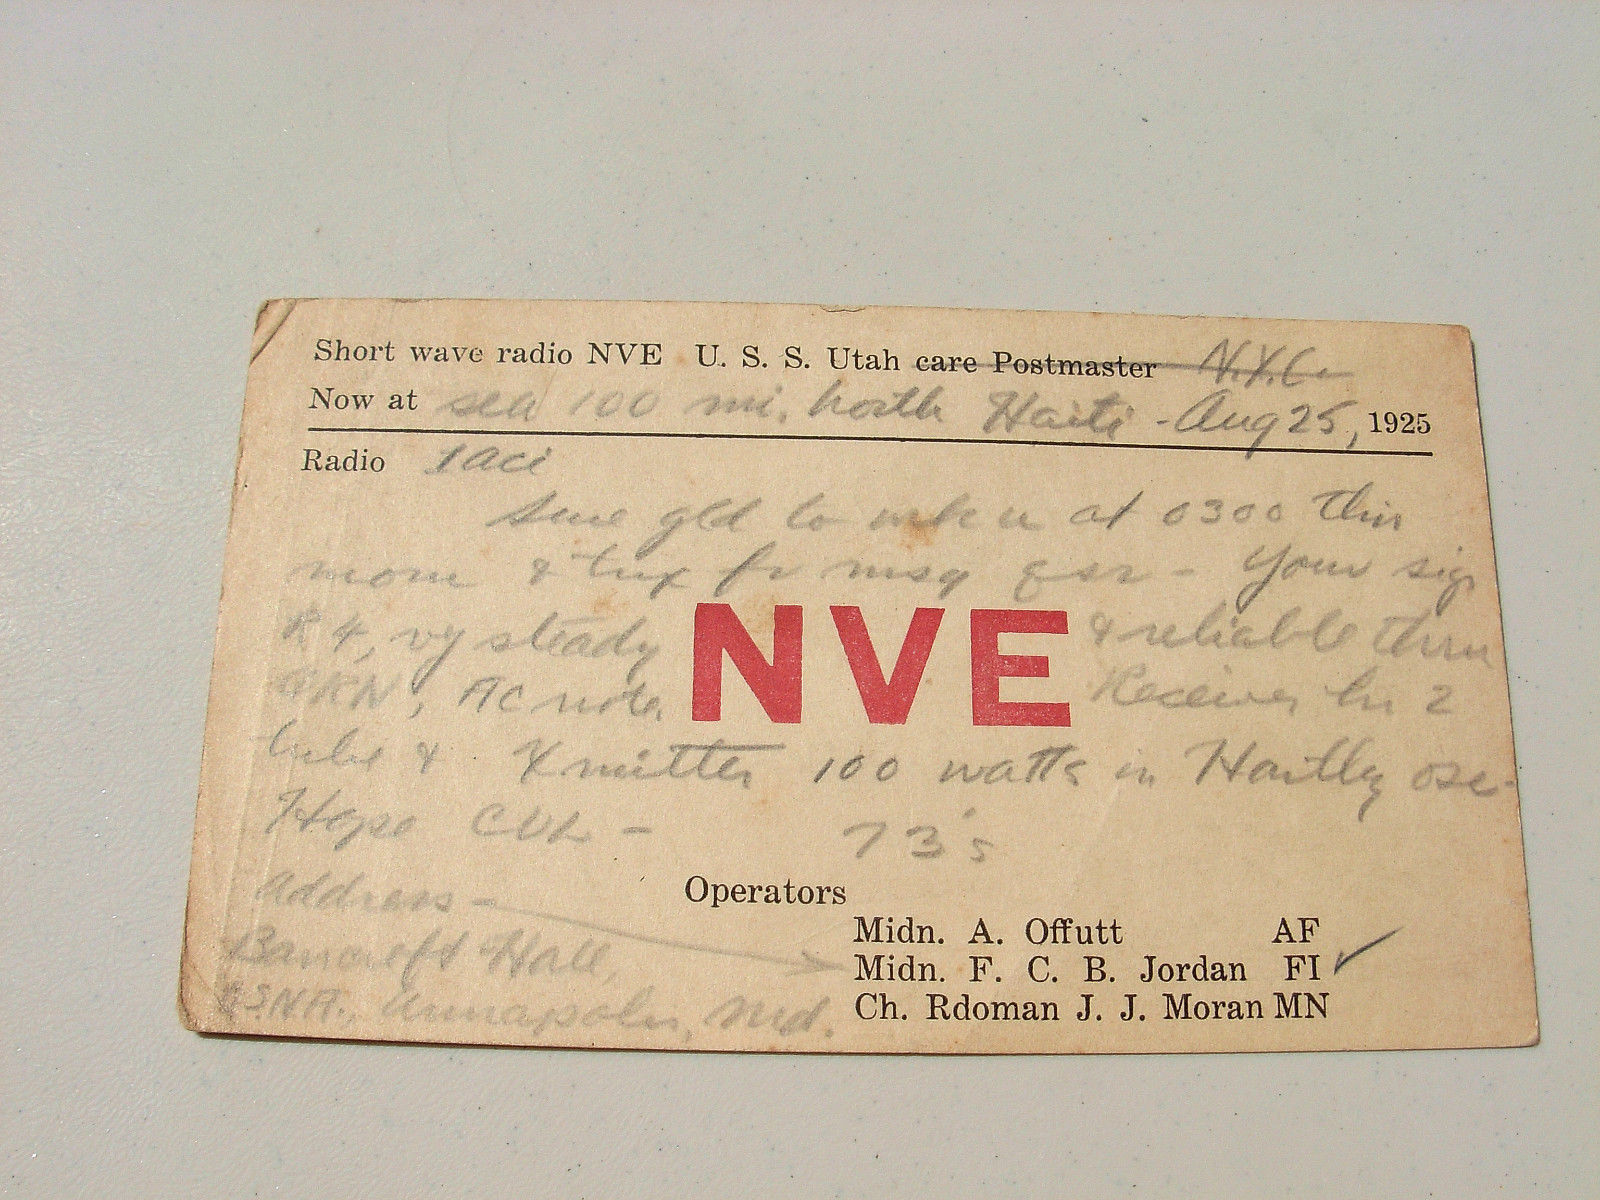 Short wave radio NVE U. S. S. Utah care Postmaster N.Y.C.
Now at sea 100 mi. north Haiti - Aug 25, 1925
Radio 1aci
Sure gld to wk u at 0300 this
morn & tnx fr msg qsr - Your sigs
R4, vy steady & reliable thru
QRN, AC note. Receiver hr 2
NVE
tube & Xmitter 100 watts in Hartley osc.
Hope CUL - 73's
Address -
Operators
Midn. A. Offutt AF
Bancroft Hall
Midn. F. C. B. Jordan FI ✓
USNA., Annapolis, Md.
Ch. Rdoman J. J. Moran MN